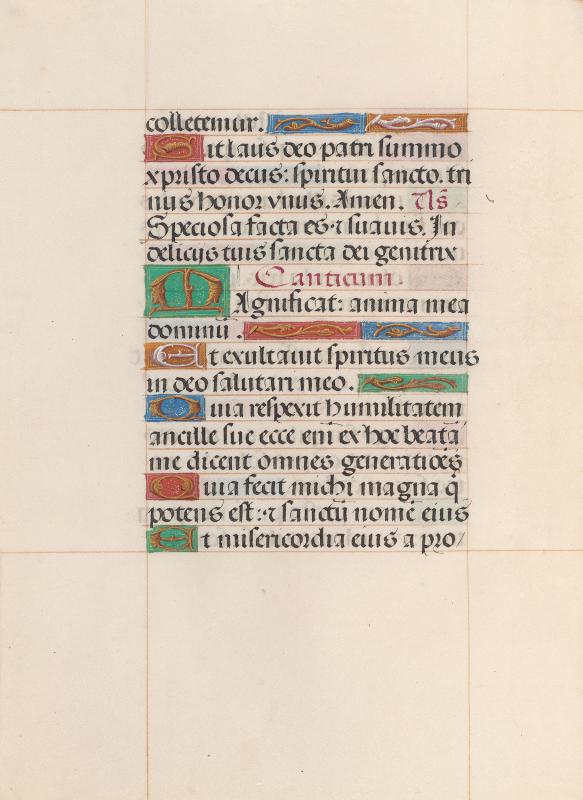 colletemur.
Sit laus deo patri summo
xpristo decus: spiritui sancto. tri
nus honor vnus. Amen. V̄s̄
Speciosa facta es ⁊ suauis. In
delicijs tuis sancta dei genitrix
Canticum.
MAgnificat: anima mea
dominū.
Et exultauit spiritus meus
in deo salutari meo.
Quia respexit humilitatem
ancille sue ecce em̄ ex hoc beatā
me dicent omnes generatiōes
Quia fecit michi magna q̄
potens est: ⁊ sanctū nomē eius
Et misericordia eius a pro/